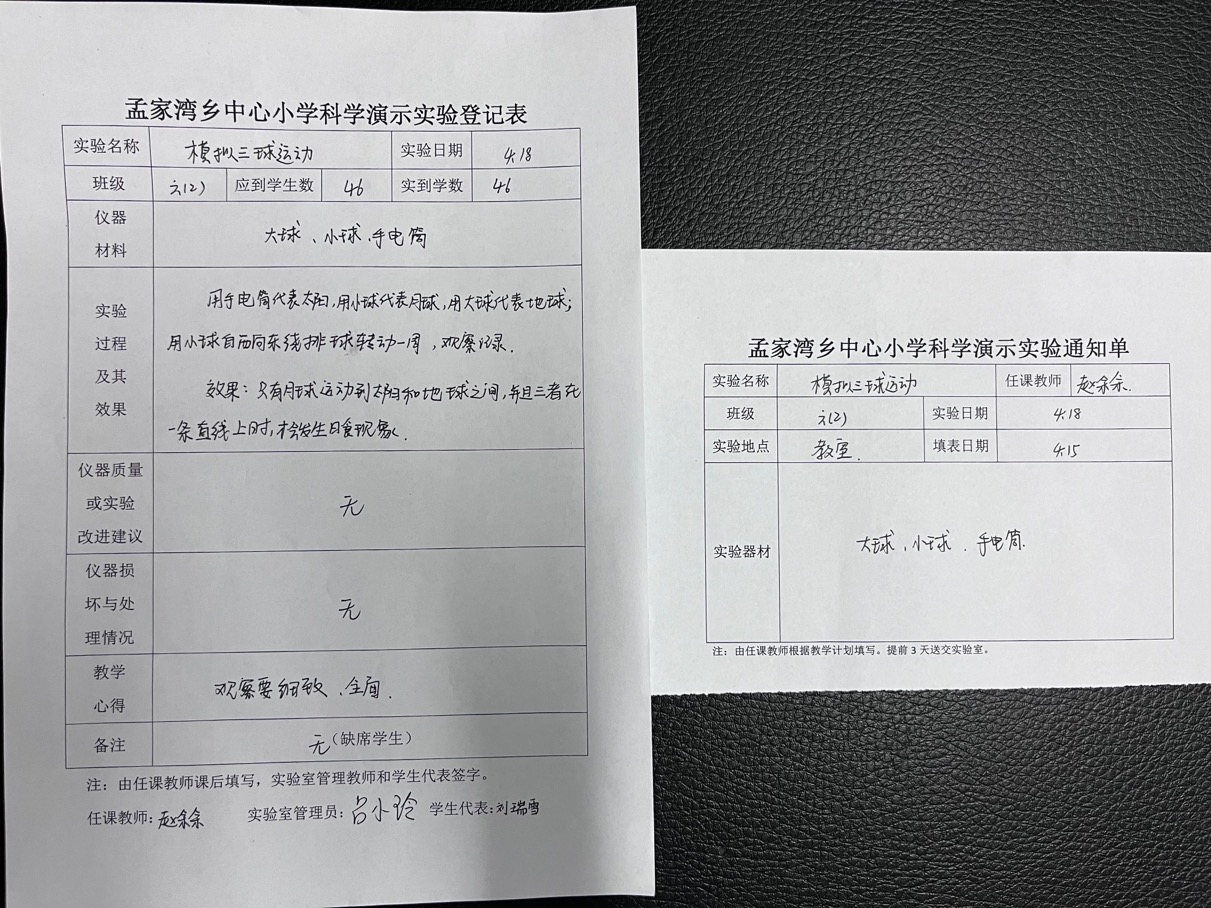 孟家湾乡中心小学科学演示实验登记表
实验名称 模拟三球运动 实验日期 4.18
班级 六(2) 应到学生数 46 实到学数 46
仪器
材料
大球、小球、手电筒
实验
过程
及其
效果
用手电筒代表太阳,用小球代表月球,用大球代表地球;
用小球自西向东绕排球转动一周,观察记录.
效果:只有月球运动到太阳和地球之间,并且三者在
一条直线上时,才会发生日食现象.
仪器质量
或实验
改进建议
无
仪器损
坏与处
理情况
无
教学
心得
观察要细致、全面.
备注 无(缺席学生)
注:由任课教师课后填写,实验室管理教师和学生代表签字。
任课教师:赵余余 实验室管理员:吕小玲 学生代表:刘瑞雪
孟家湾乡中心小学科学演示实验通知单
实验名称 模拟三球运动 任课教师 赵余余.
班级 六(2) 实验日期 4.18
实验地点 教室. 填表日期 4.15
实验器材 大球、小球、手电筒.
注:由任课教师根据教学计划填写。提前 3 天送交实验室。